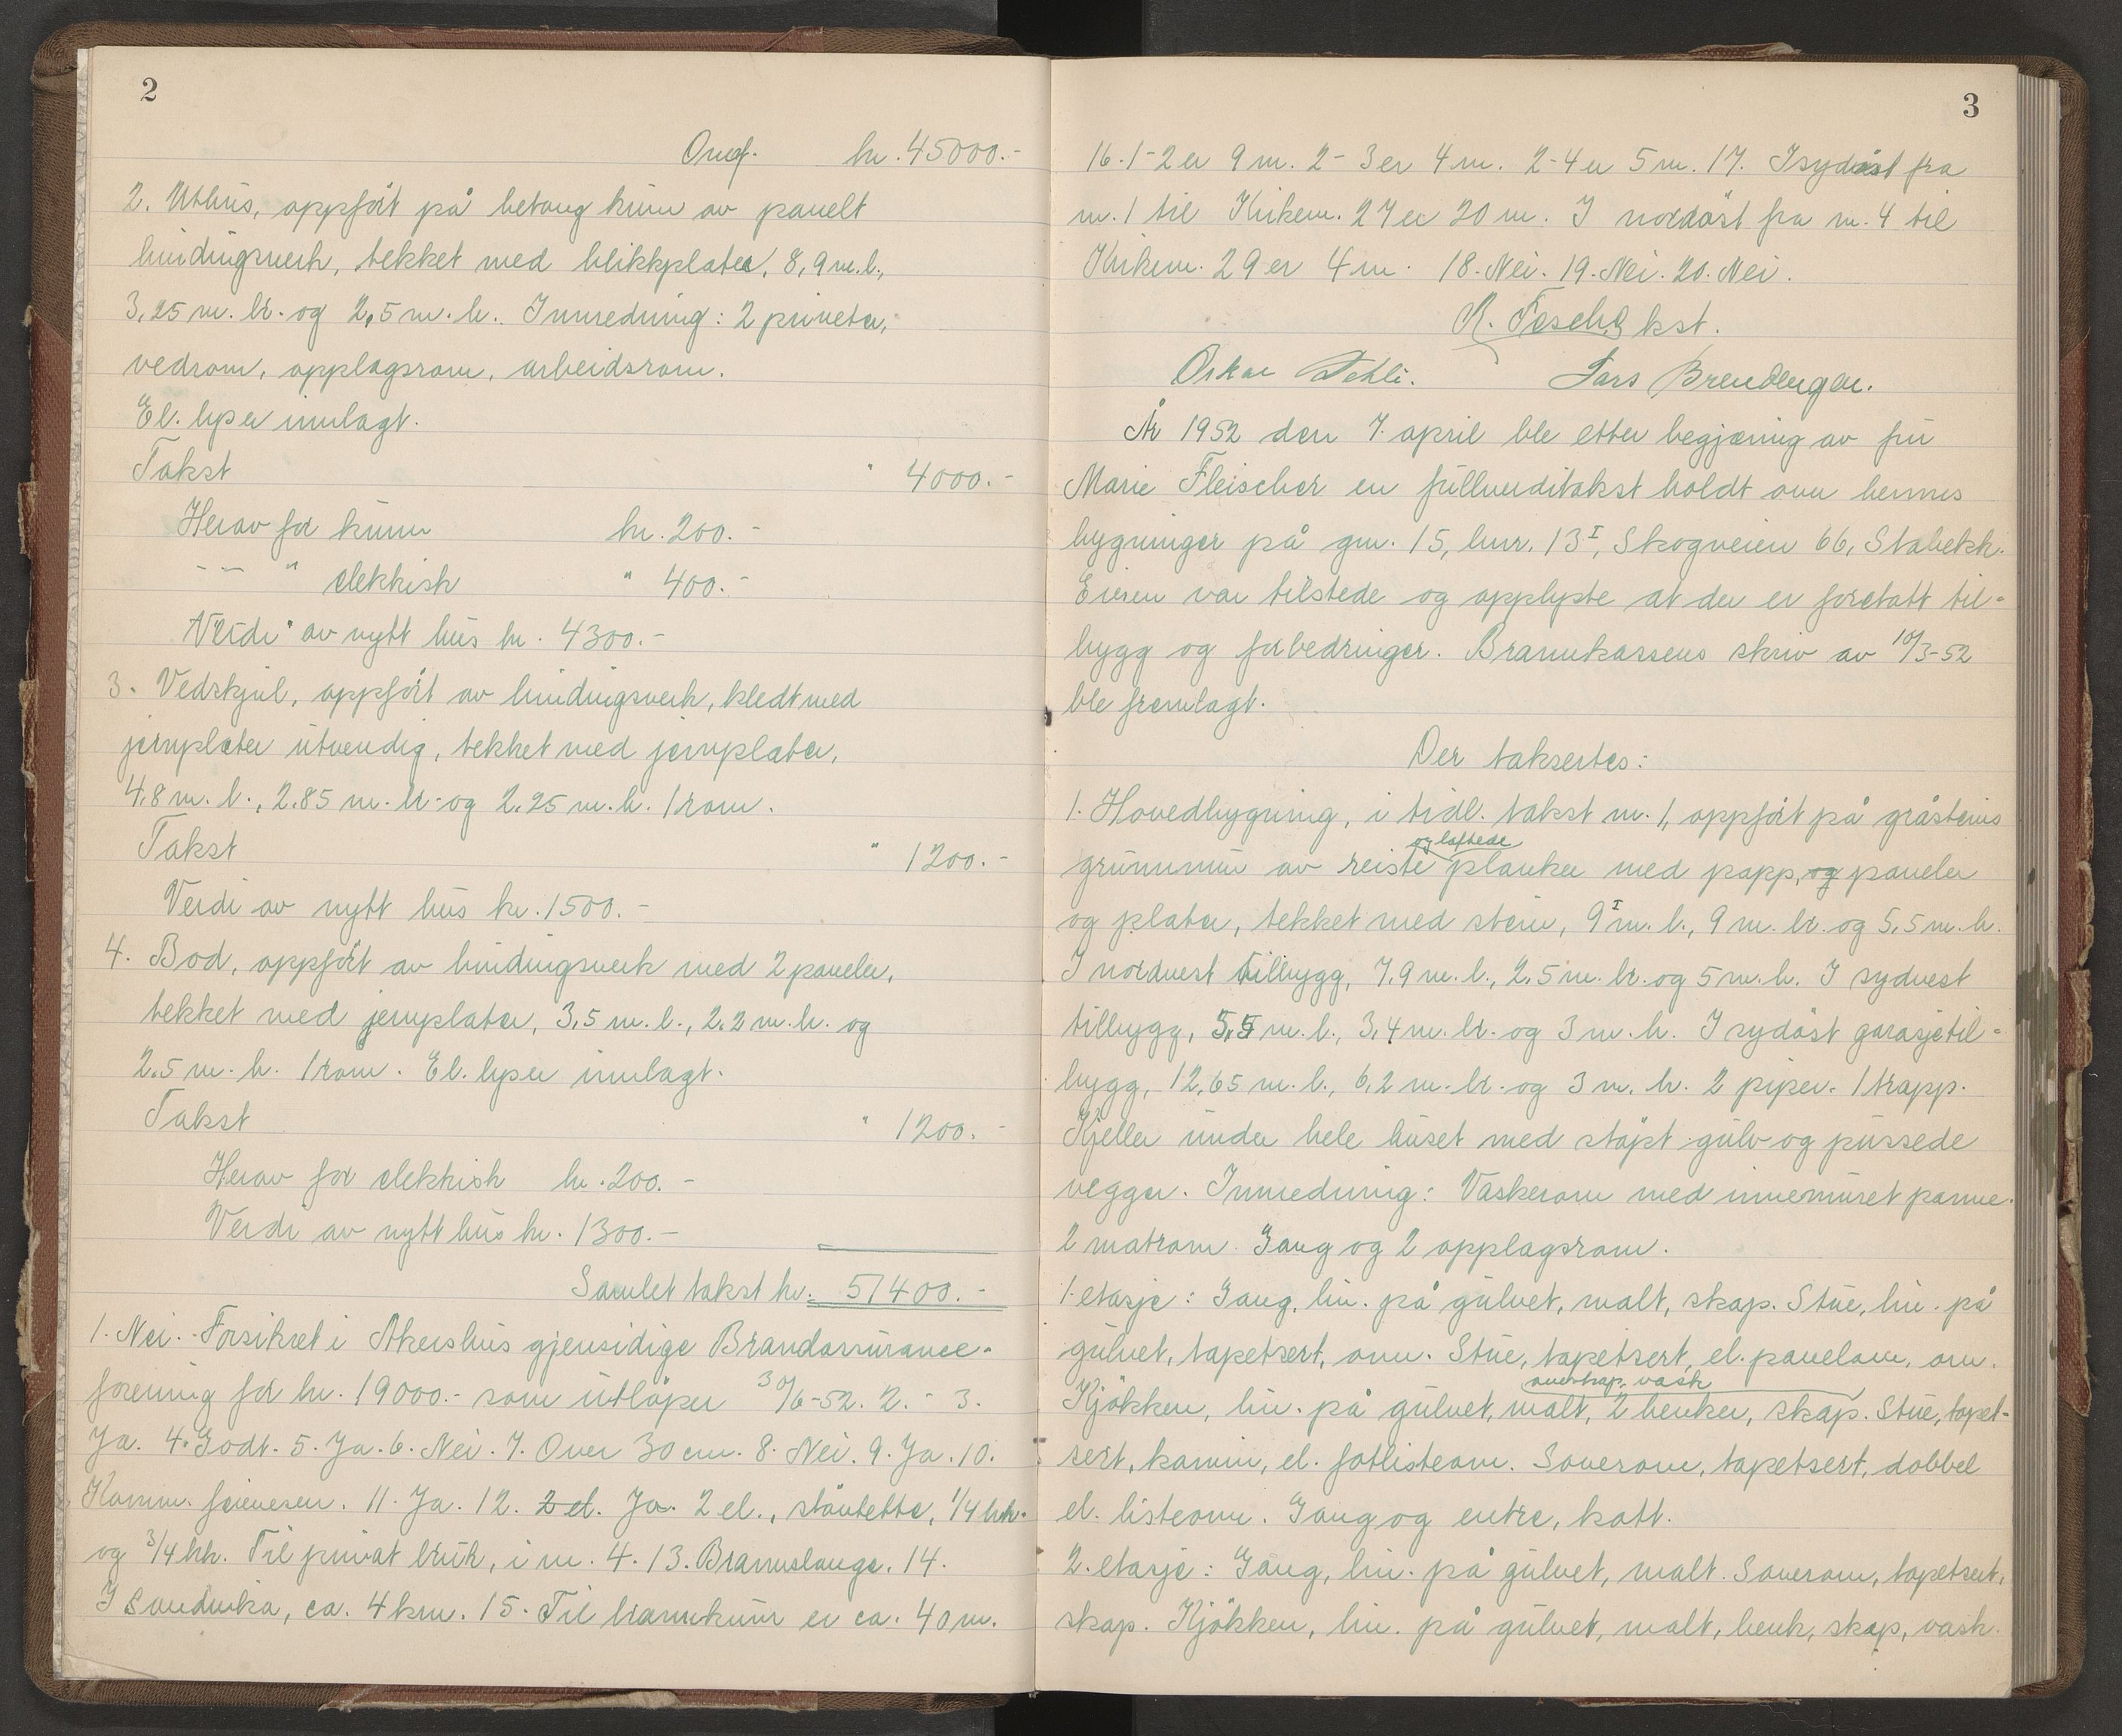 2
Overf. kr. 45000.-
2. Uthus, oppført på betong kum av panelt
bindingsverk, tekket med blikkplater, 8,9 m. l.,
3,25 m. br. og 2,5 m. h. Innredning: 2 priveter,
vedrom, opplagsrom, arbeidsrom.
El. lys er innlagt.
Takst " 4000.-
Herav for kum kr. 200.-
- - " elektrisk " 400.-
Verdi av nytt hus kr. 4300.-
3. Vedskjul, oppført av bindingsverk, kledt med
jernplater utvendig, tekket med jernplater,
4,8 m. l., 2.85 m. br. og 2.25 m. h. 1 rom.
Takst " 1200.-
Verdi av nytt hus kr. 1500.-
4. Bod, oppført av bindingsverk med 2 paneler,
tekket med jernplater, 3,5 m. l., 2.2 m. br. og
2.5 m. h. 1 rom. El. lys er innlagt.
Takst " 1200.-
Herav for elektrisk kr. 200.-
Verdi av nytt hus kr. 1300.-
Samlet takst kr. 51400.-
1. Nei. Forsikret i Akershus gjensidige Brandassurance-
forening for kr. 19000.- som utløper 30/6-52. 2. - 3.
Ja. 4. Godt. 5. Ja. 6. Nei. 7. Over 30 cm. 8. Nei. 9. Ja. 10.
Komm. feievesen. 11. Ja. 12. 2 el. Ja. 2 el., støvtette, 1/4 hk.
og 3/4 hk. Til privat bruk, i nr. 4. 13. Brannslange. 14.
I Sandvika, ca. 4 km. 15. Til brannkum er ca. 40 m.
3
16. 1-2 er 9 m. 2-3 er 4 m. 2-4 er 5 m. 17. I sydøst fra
nr. 1 til Kirkev. 27 er 20 m. I nordøst fra nr. 4 til
Kirkev. 29 er 4 m. 18. Nei. 19. Nei. 20. Nei.
R. kst.
Oskar Lars Brendengen.
År 1952 den 7. april ble etter begjæring av fru
Marie Fleischer en fullverditakst holdt over hennes
bygninger på gnr. 15, bnr. 13 I, Skogveien 66, Stabekk.
Eieren var tilstede og opplyste at der er foretatt til-
bygg og forbedringer. Brannkassens skriv av 10/3-52
ble fremlagt.
Der taksertes:
1. Hovedbygning, i tidl. takst nr. 1, oppført på gråsteins
grunnmur av reiste og laftede planker med papp, og paneler
og plater, tekket med stein, 9 m. l., 9 m. br. og 5,5 m. h.
I nordvest tilbygg, 7,9 m. l., 2,5 m. br. og 5 m. h. I sydvest
tilbygg, 5,5 m. l., 3,4 m. br. og 3 m. h. I sydøst garasjetil-
bygg, 12,65 m. l., 6,2 m. br. og 3 m. h. 2 piper. 1 trapp.
Kjeller under hele huset med støpt gulv og pussede
vegger. Innredning: Vaskerom med innemuret panne.
2 matrom. Gang og 2 opplagsrom.
1. etasje: Gang, lin. på gulvet, malt, skap. Stue, lin. på
gulvet, tapetsert, ovn. Stue, tapetsert, el. panelovn, ovn.
overskap, vask
Kjøkken, lin. på gulvet, malt, 2 benker, skap. Stue, tapet-
sert, kamin, el. fotlisteovn. Soverom, tapetsert, dobbel
el. listeovn. Gang og entre, kott.
2. etasje: Gang, lin. på gulvet, malt. Soverom, tapetsert,
skap. Kjøkken, lin. på gulvet, malt, benk, skap, vask.